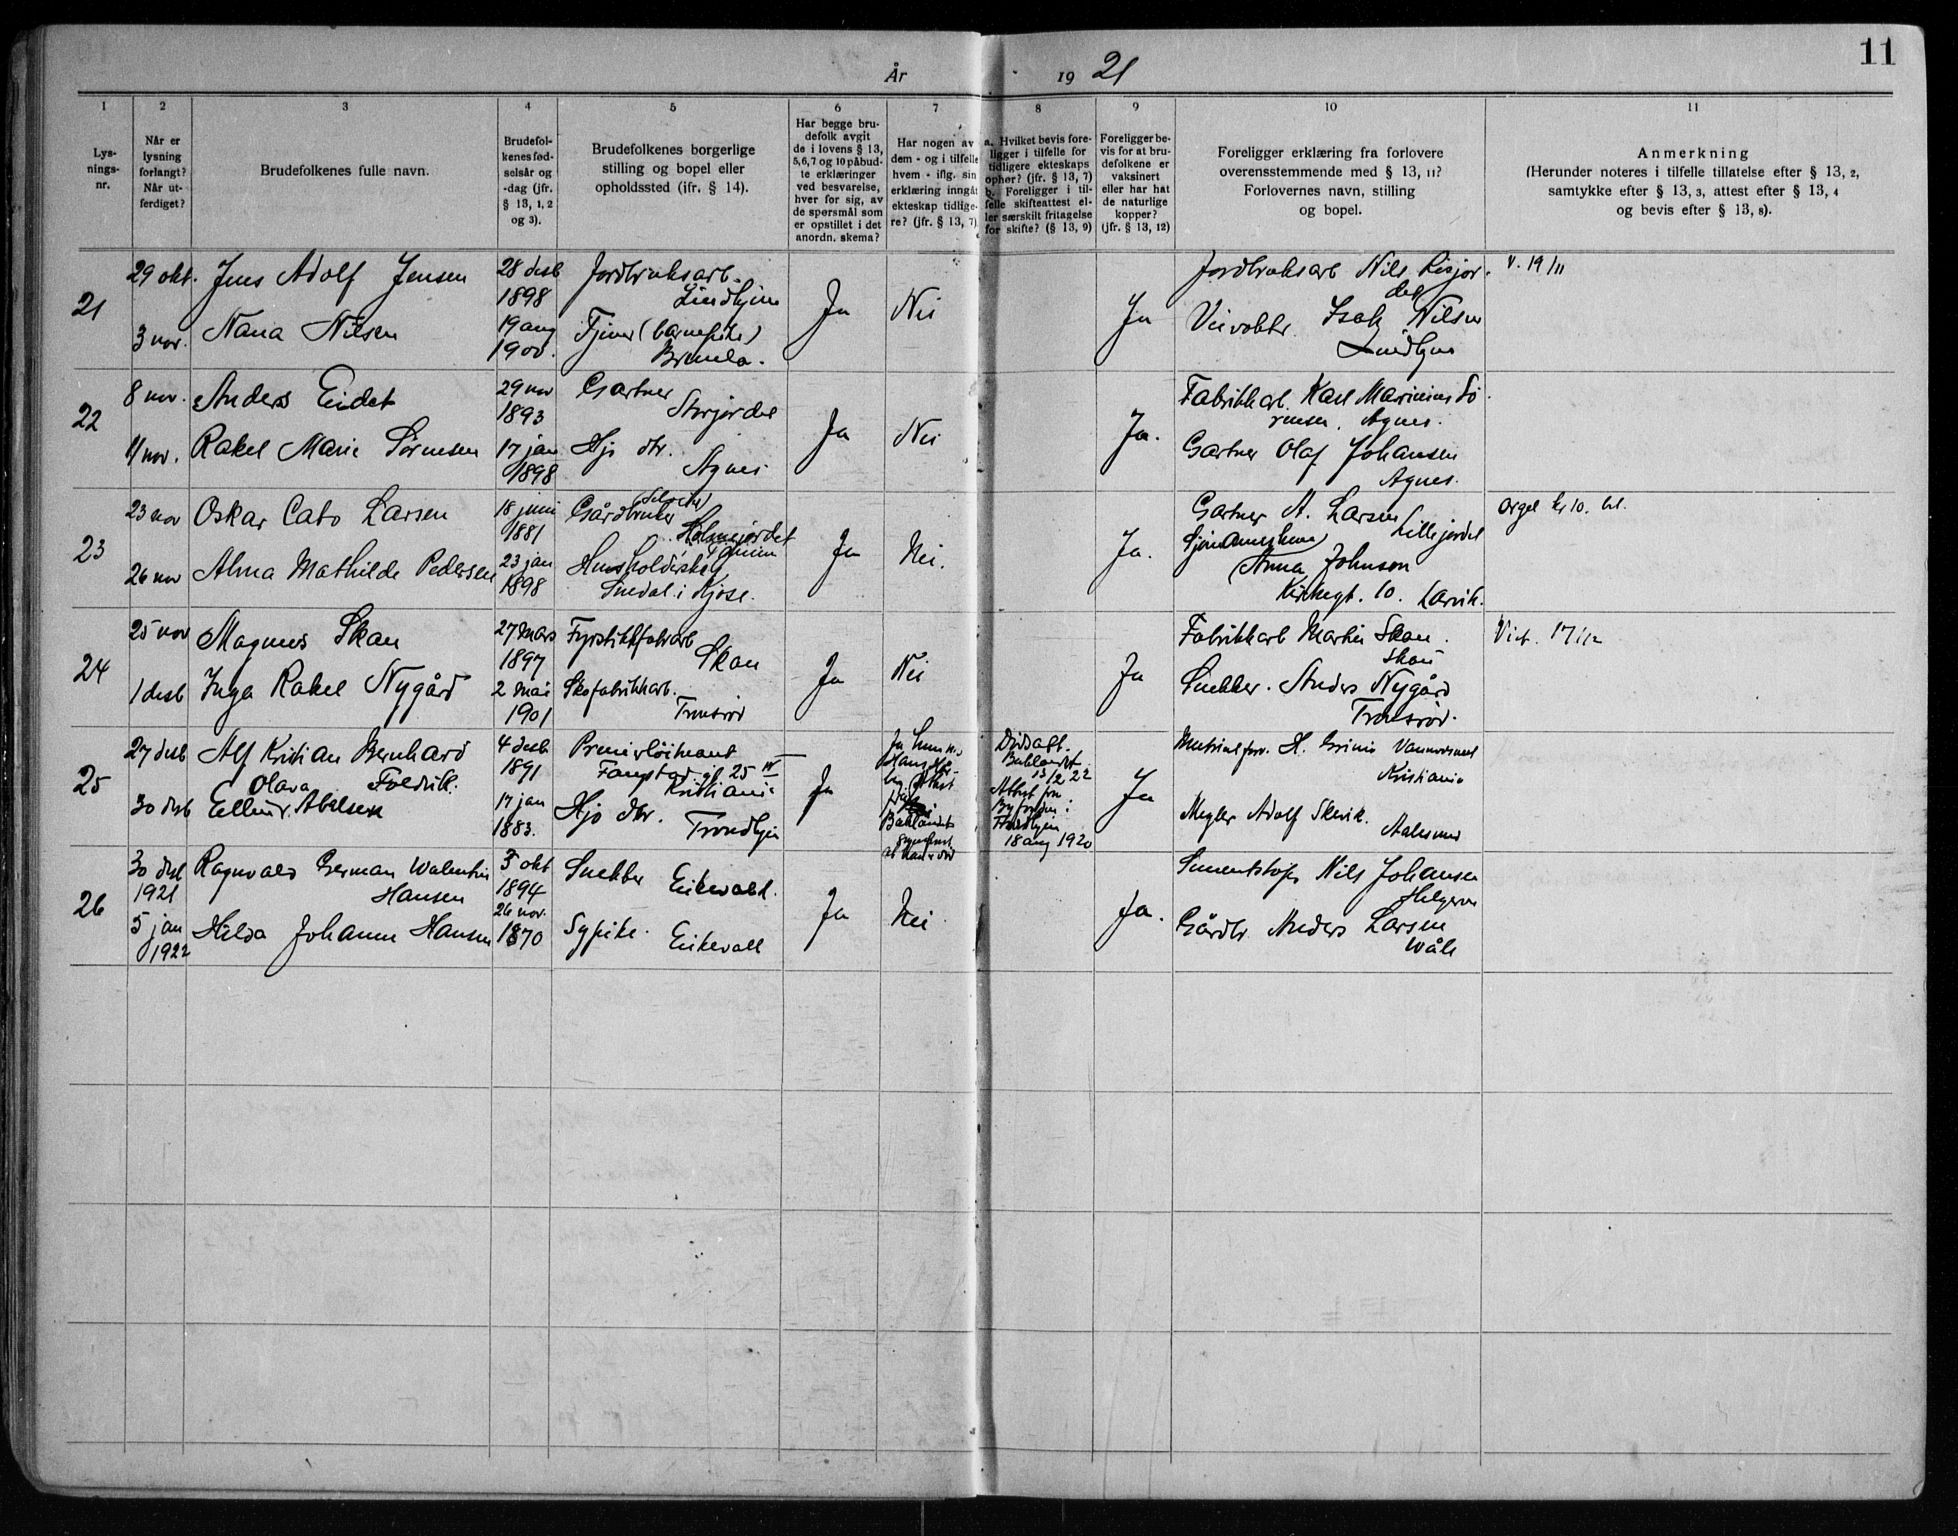 11
År 1921
1 2 3 4 5 6 7 8 9 10 11
Lys-
nings-
nr.
Når er
lysning
forlangt?
Når ut-
ferdiget?
Brudefolkenes fulle navn.
Brudefol-
kenes fød-
selsår og
-dag (jfr.
§ 13, 1, 2
og 3).
Brudefolkenes borgerlige
stilling og bopel eller
opholdssted (ifr. § 14).
Har begge bru-
defolk avgit
de i lovens § 13,
5,6,7 og 10 påbud-
te erklæringer
ved besvarelse,
hver for sig, av
de spørsmål som
er opstillet i det
anordn. skema?
Har nogen av
dem - og i tilfelle
hvem - iflg. sin
erklæring inngåt
ekteskap tidlige-
re? (jfr. § 13, 7)
a. Hvilket bevis fore-
ligger i tilfelle for
tidligere ekteskaps
ophør? (jfr. § 13, 7)
b. Foreligger i til-
felle skifteattest el-
ler særskilt fritagelse
for skifte? (§ 13, 9)
Foreligger be-
vis for at bru-
defolkene er
vaksinert
eller har hat
de naturlige
kopper?
(jfr. § 13, 12)
Foreligger erklæring fra forlovere
overensstemmende med § 13, 11?
Forlovernes navn, stilling
og bopel.
Anmerkning
(Herunder noteres i tilfelle tillatelse efter § 13, 2,
samtykke efter § 13, 3, attest efter § 13, 4
og bevis efter § 13, 8).
21
29 okt.
3 nov.
Jens Adolf Jensen
Nana Nilsen
28 desb
1898
19 aug
1900.
Jordbruksarb.
Lindhjem
Tjener (barnepike)
Bremla.
Ja
Nei
Ja
Jordbruksarb Nils Risjor-
det
Veivokt. Isak Nilsen
Lindhjem
V. 19/11
22
8 nov.
11 nov.
Anders Eidet
Rakel Marie Sørensen
29 nov
1893
17 jan
1898
Gartner
Storjordet
Hjv. dtr.
Agnes
Ja
Nei
Ja.
Fabrikkarb. Karl Marinius Sö-
rensen. Agnes.
Gartner Olaf Johansen
Agnes.
23
23 nov
26 nov
Oskar Cato Larsen
Alma Mathilde Pedersen
18 juni
1881
23 jan
1898
Gårdbruker (Seloeier)
Holmejordet
Tanum
Husholderske
Snedal i Kjose.
Ja
Nei.
Ja.
Gartner A. Larsen
Lillejordet
Anna Johnson
Kirkegt. 10. Larvik.
Orgel kr 10. bl.
24
25 nov
1 desb
Magnus Skau
Inga Rakel Nygård
27 mars
1897
2 mai
1901
Fyrstikkfabrarb
Skau
Skofabrikkarb.
Tronsrød
Ja
Nei
Ja
Fabrikkarb Martin Skau.
Skau
Snekker. Anders Nygård
Tronsrød.
Viet. 17/12
25
27 desb
30 desb
Alf Kristian Bernhard
Olava Foldvik.
Ellen Abelsen
4 desb
1891
17 jan
1883.
Premierløitnant
25 IV
Kristiania
Hjv dtr.
Trondhjem
Ja
Ja hun
Dødsatt.
13/2 22
Attest fra
Byfogden i
Trondhjem
18 aug 1920
Ja
H. Grinis
Kristiania
Megler Adolf Skevik.
Aalesund
26
30 desb
1921
5 jan
1922
Ragnvald Herman Walentin
Hansen
Hilda Johanne Hansen
3 okt
1894
26 nov.
1870
Snekker Eikevald.
Sypike. Eikevall
Ja
Nei
Ja.
Sementstøper Nils Johansen
Helgeroa
Gårdbr Anders Larsen
Wåle